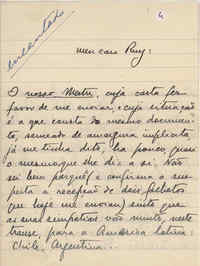 encontrado
6
Meu caro Ruy:
O nosso Matu, cuja carta fez
favor de me enviar, e cuja situação
é a que consta do mesmo documen-
to, semeado de amargura implicita,
já me tinha dito, ha pouco, quasi
o mesmo que lhe diz a si. Não
sei bem porquê (e confirma a sus-
peita a recepção de dois
que hoje me enviou) sinto que
as suas simpatias vão muito, neste
transe, para a América latina:
Chile, Argentina...